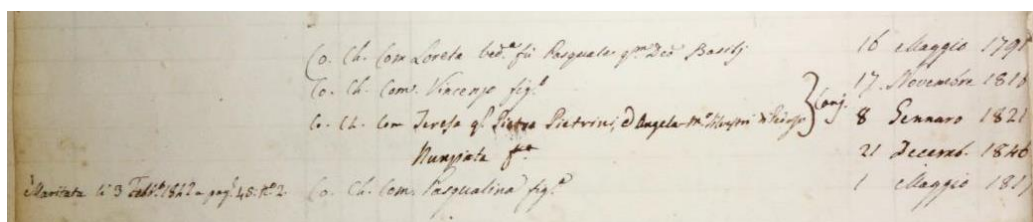 Co. Ch. Com Loreta ved.ª fù Pasquale q.m Deo Basilj 16 Maggio 179
Co. Ch. Com. Vincenzo fig.º 17 Novembre 181
Co. Ch. Com Teresa q. Pietro Pietrini, e Angela M.ª Conj. 8 Gennaro 1821
Nunziata fª 21 Decemb. 1846
Maritata li 3 Feb.º 1842 a pag. 48: N.º 2 Co. Ch. Com. Pasqualina fig.ª 1 Maggio 181